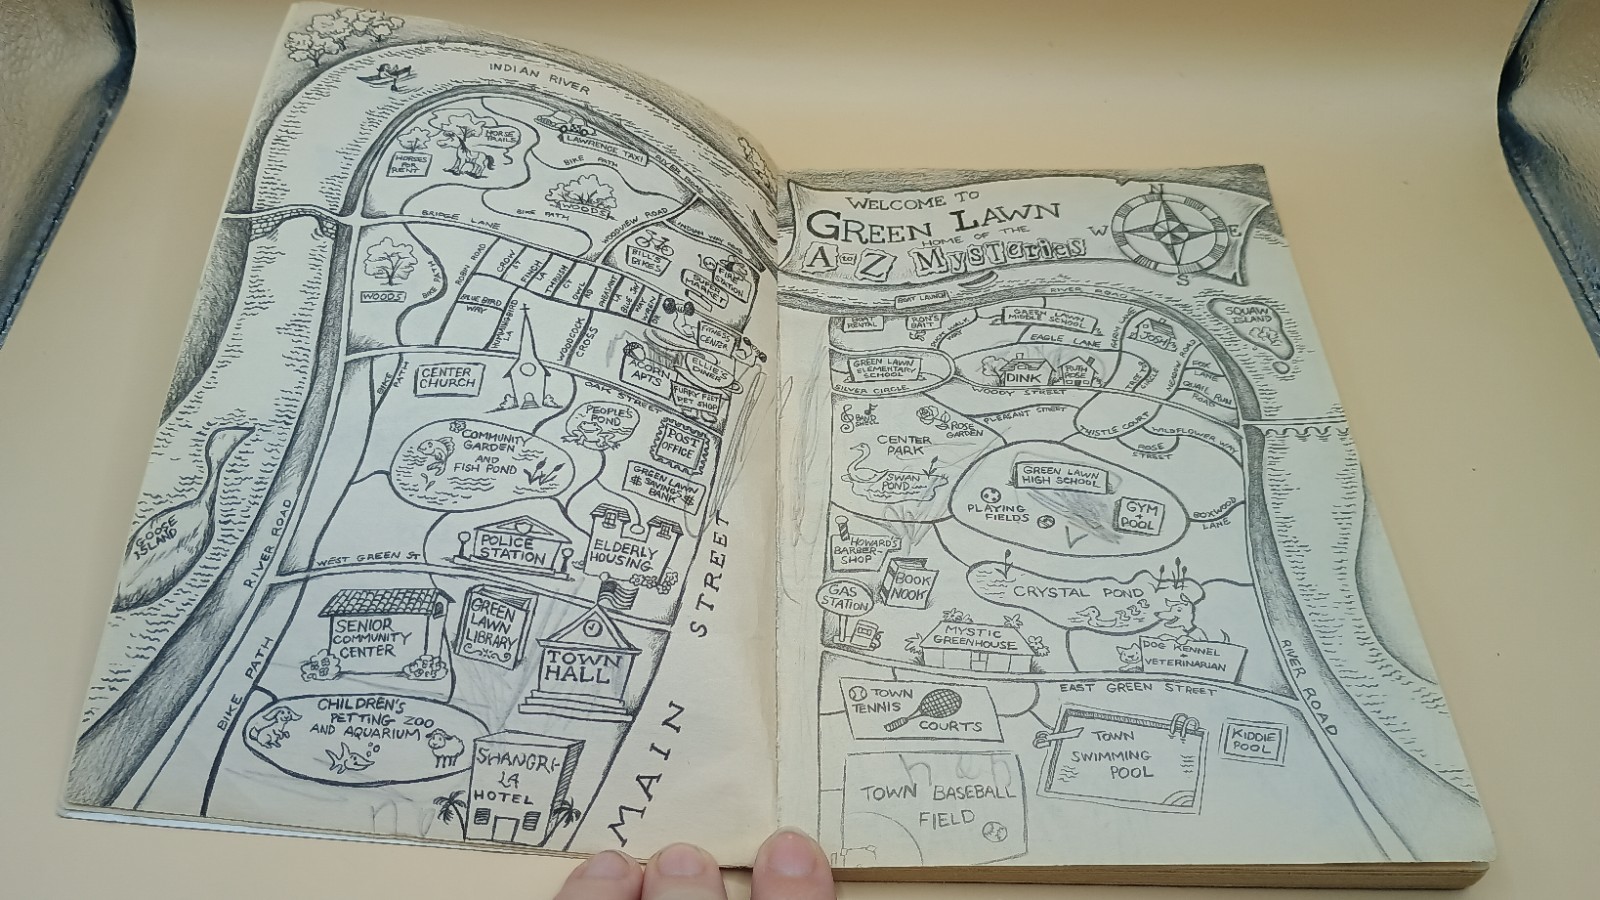 INDIAN RIVER
HORSE
TRAILS
HORSES
FOR
RENT
LAWRENCE TAXI
BIKE PATH
RIVER ROAD
WOODS
BIKE PATH
BRIDGE LANE
WOODVIEW ROAD
BILL'S
BIKES
SUPER
MARKET
FIRE
STATION
WOODS
BIKE PATH
ROBIN ROAD
CROW
ST
FINCH
LA
THRUSH
CT
OWL
RD
PHEASANT
LA
BLUE JAY
WAY
WREN
DR
BLUE BIRD
WAY
HUMMINGBIRD
LA
WOODCOCK
CROSS
FITNESS
CENTER
ELLIE'S
DINER
ACORN
APTS
FURRY FEET
PET SHOP
BIKE
PATH
CENTER
CHURCH
OAK STREET
PEOPLE'S
POND
POST
OFFICE
COMMUNITY
GARDEN
AND
FISH POND
GREEN LAWN
$ SAVINGS $
BANK
GOOSE
ISLAND
RIVER ROAD
POLICE
STATION
ELDERLY
HOUSING
WEST GREEN ST
SENIOR
COMMUNITY
CENTER
GREEN
LAWN
LIBRARY
TOWN
HALL
BIKE PATH
CHILDREN'S
PETTING ZOO
AND AQUARIUM
SHANGRI-
LA
HOTEL
MAIN STREET
WELCOME TO
GREEN LAWN
HOME OF THE
A to Z MYSTERIES
N
W
E
S
BOAT LAUNCH
RIVER ROAD
BOAT
RENTAL
RON'S
BAIT
DUCK WALK
WAY
GREEN LAWN
MIDDLE SCHOOL
EAGLE LANE
FARM LANE
JOSH
SQUAW
ISLAND
GREEN LAWN
ELEMENTARY
SCHOOL
SILVER CIRCLE
DINK
RUTH
ROSE
WOODY STREET
MEADOW ROAD
FOX
LANE
QUAIL RUN
ROAD
BAND
ROSE
GARDEN
PLEASANT STREET
THISTLE COURT
WILDFLOWER WAY
ROSE
STREET
CENTER
PARK
SWAN
POND
GREEN LAWN
HIGH SCHOOL
PLAYING
FIELDS
GYM
+
POOL
BOXWOOD
LANE
HOWARD'S
BARBER-
SHOP
BOOK
NOOK
GAS
STATION
CRYSTAL POND
MYSTIC
GREENHOUSE
DOG KENNEL
+
VETERINARIAN
EAST GREEN STREET
RIVER ROAD
TOWN
TENNIS
COURTS
TOWN
SWIMMING
POOL
KIDDIE
POOL
TOWN BASEBALL
FIELD